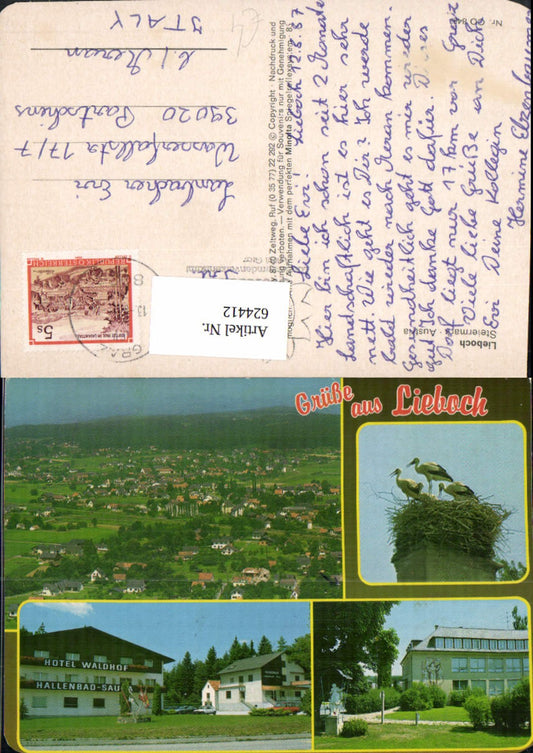 Lieboch
Steiermark - Austria
Nr. GD 84
Lieboch 12.8.87
Liebe Evi!
Hier bin ich schon seit 2 Monate
Landschaftlich ist es hier sehr
nett. Wie geht es Dir? Ich werde
bald wieder nach Meran kommen.
Gesundheitlich geht es mir wieder
gut. Ich danke Gott dafür.
Dorf liegt nur 17 km vor Graz
Viele liebe Grüße an Dich
Evi Deine Kollegin
Hermine
8740 Zeltweg, Ruf (0 35 77) 22 202 © Copyright · Nachdruck und
verboten. — Verwendung für Souvenirs nur mit Genehmigung
Aufnahmen mit dem perfekten Minolta Spiegelreflexsystem
Evi
17/7
39020 Partschins
b/ Meran
ITALY
REPUBLIK ÖSTERREICH
5 S
GRAZ
Artikel Nr.
624412
Grüße aus Lieboch
HOTEL WALDHOF
HALLENBAD-SAU